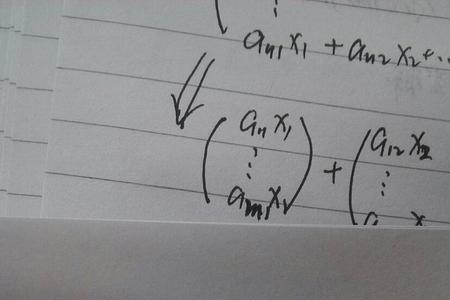 ⋮
aₙ₁x₁ + aₙ₂x₂+...
⇓
(a₁₁x₁ ⋮ aₘ₁x₁) + (a₁₂x₂ ⋮